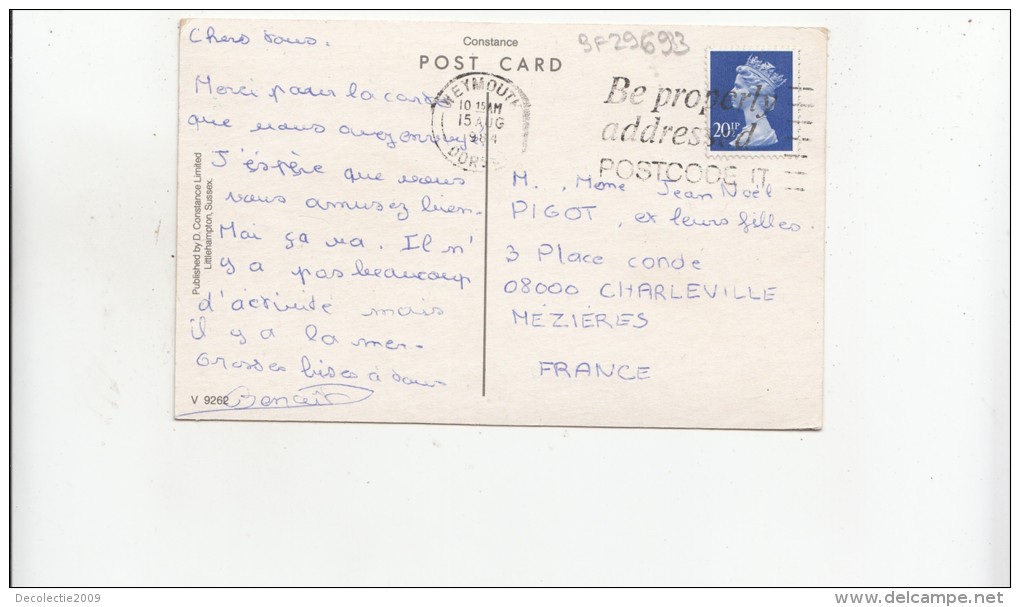 Chers tous.
Merci pour la carte
que vous avez envoyé
J'éspère que vous
vous amusez bien.
Moi ça va. Il n'
y a pas beaucoup
d'activité mais
il y a la mer.
Grosses bises à tous
Benoit
V 9262
Published by D. Constance Limited
Littlehampton, Sussex.
Constance
POST CARD
BF29693
WEYMOUTH
10 15 AM
15 AUG
1984
DORSET
Be properly
addressed
POSTCODE IT
20½P
M., Mme Jean Noël
PIGOT, et leurs filles.
3 Place condé
08000 CHARLEVILLE
MÉZIÈRES
FRANCE
Decolectie2009
delcampe.net